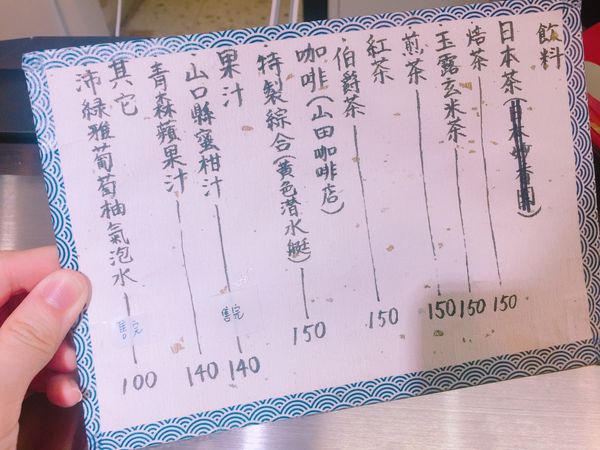 飲料
日本茶()
焙茶 150
玉露玄米茶 150
煎茶 150
紅茶
伯爵茶 150
咖啡(山田咖啡店)
特製綜合(黃色潛水艇) 150
果汁
山口縣蜜柑汁 售完 140
青森蘋果汁 140
其它
沛綠雅葡萄柚氣泡水 售完 100